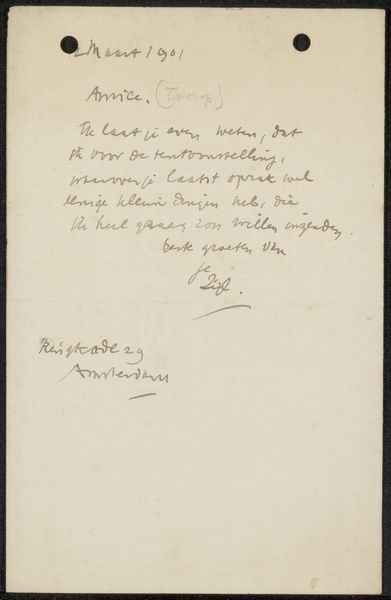 Maart 1901
Amice. (Toorop)
Ik laat je even weten, dat
ik voor de tentoonstelling,
waarover je laatst sprak wel
eenige kleine dingen heb, die
ik heel gaarne zou willen inzenden.
beste groeten van
je
Zijl.
29
Amsterdam